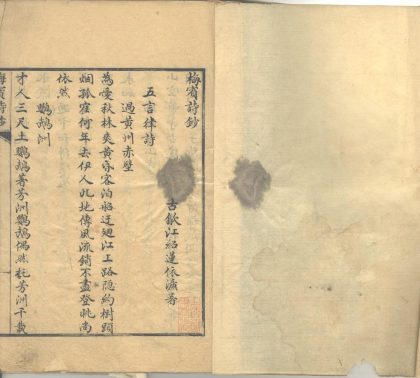 梅賓詩鈔
古歙江紹蓮依濂著
五言律詩
過黃州赤壁
為愛秋林爽黃昏客泊船迂迴江上路隱約樹頭
烟孤窟何年去伊人此地傳風流銷不盡登眺尚
依然
鸚鵡洲
才人三尺土鸚鵡著芳洲鸚鵡偶然託芳洲千載
梅賓詩鈔